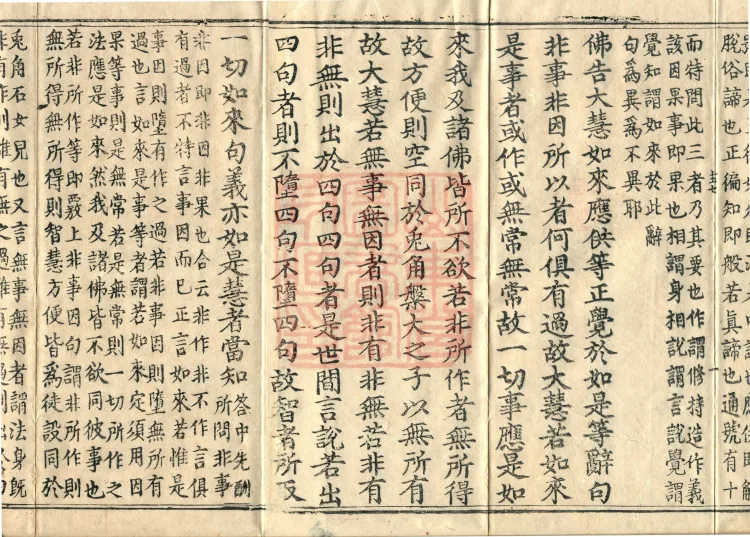 脫俗諦也正徧知即般若真諦也通號有十
而待問此三者乃其要也作謂修持造作義
該因果事即果也相謂身相說謂言說覺謂
覺知謂如來於此辭
句爲異爲不異耶
佛告大慧如來應供等正覺於如是等辭句
非事非因所以者何俱有過故大慧若如來
是事者或作或無常無常故一切事應是如
來我及諸佛皆所不欲若非所作者無所得
故方便則空同於兔角槃大之子以無所有
故大慧若無事無因者則非有非無若非有
非無則出於四句四句者是世間言說若出
四句者則不墮四句不墮四句故智者所取
一切如來句義亦如是慧者當知
答中先酬
所問非事
非因即非因非果也合云非作非不作言俱
有過者不特言事因而已正言如來若惟是
事因則墮有作之過若非事因則墮無所有
過也言如來是事等者謂若如來定須用因
果等事則是無常若是無常則一切所作之
法應是如來然我及諸佛皆不欲同彼事也
若非所作等即覈上非事因句謂非所作則
無所得無所得則智慧方便皆爲徒設同於
兔角石女兒也又言無事無因者謂法身既
非有作則離有無之過離有無過則出於